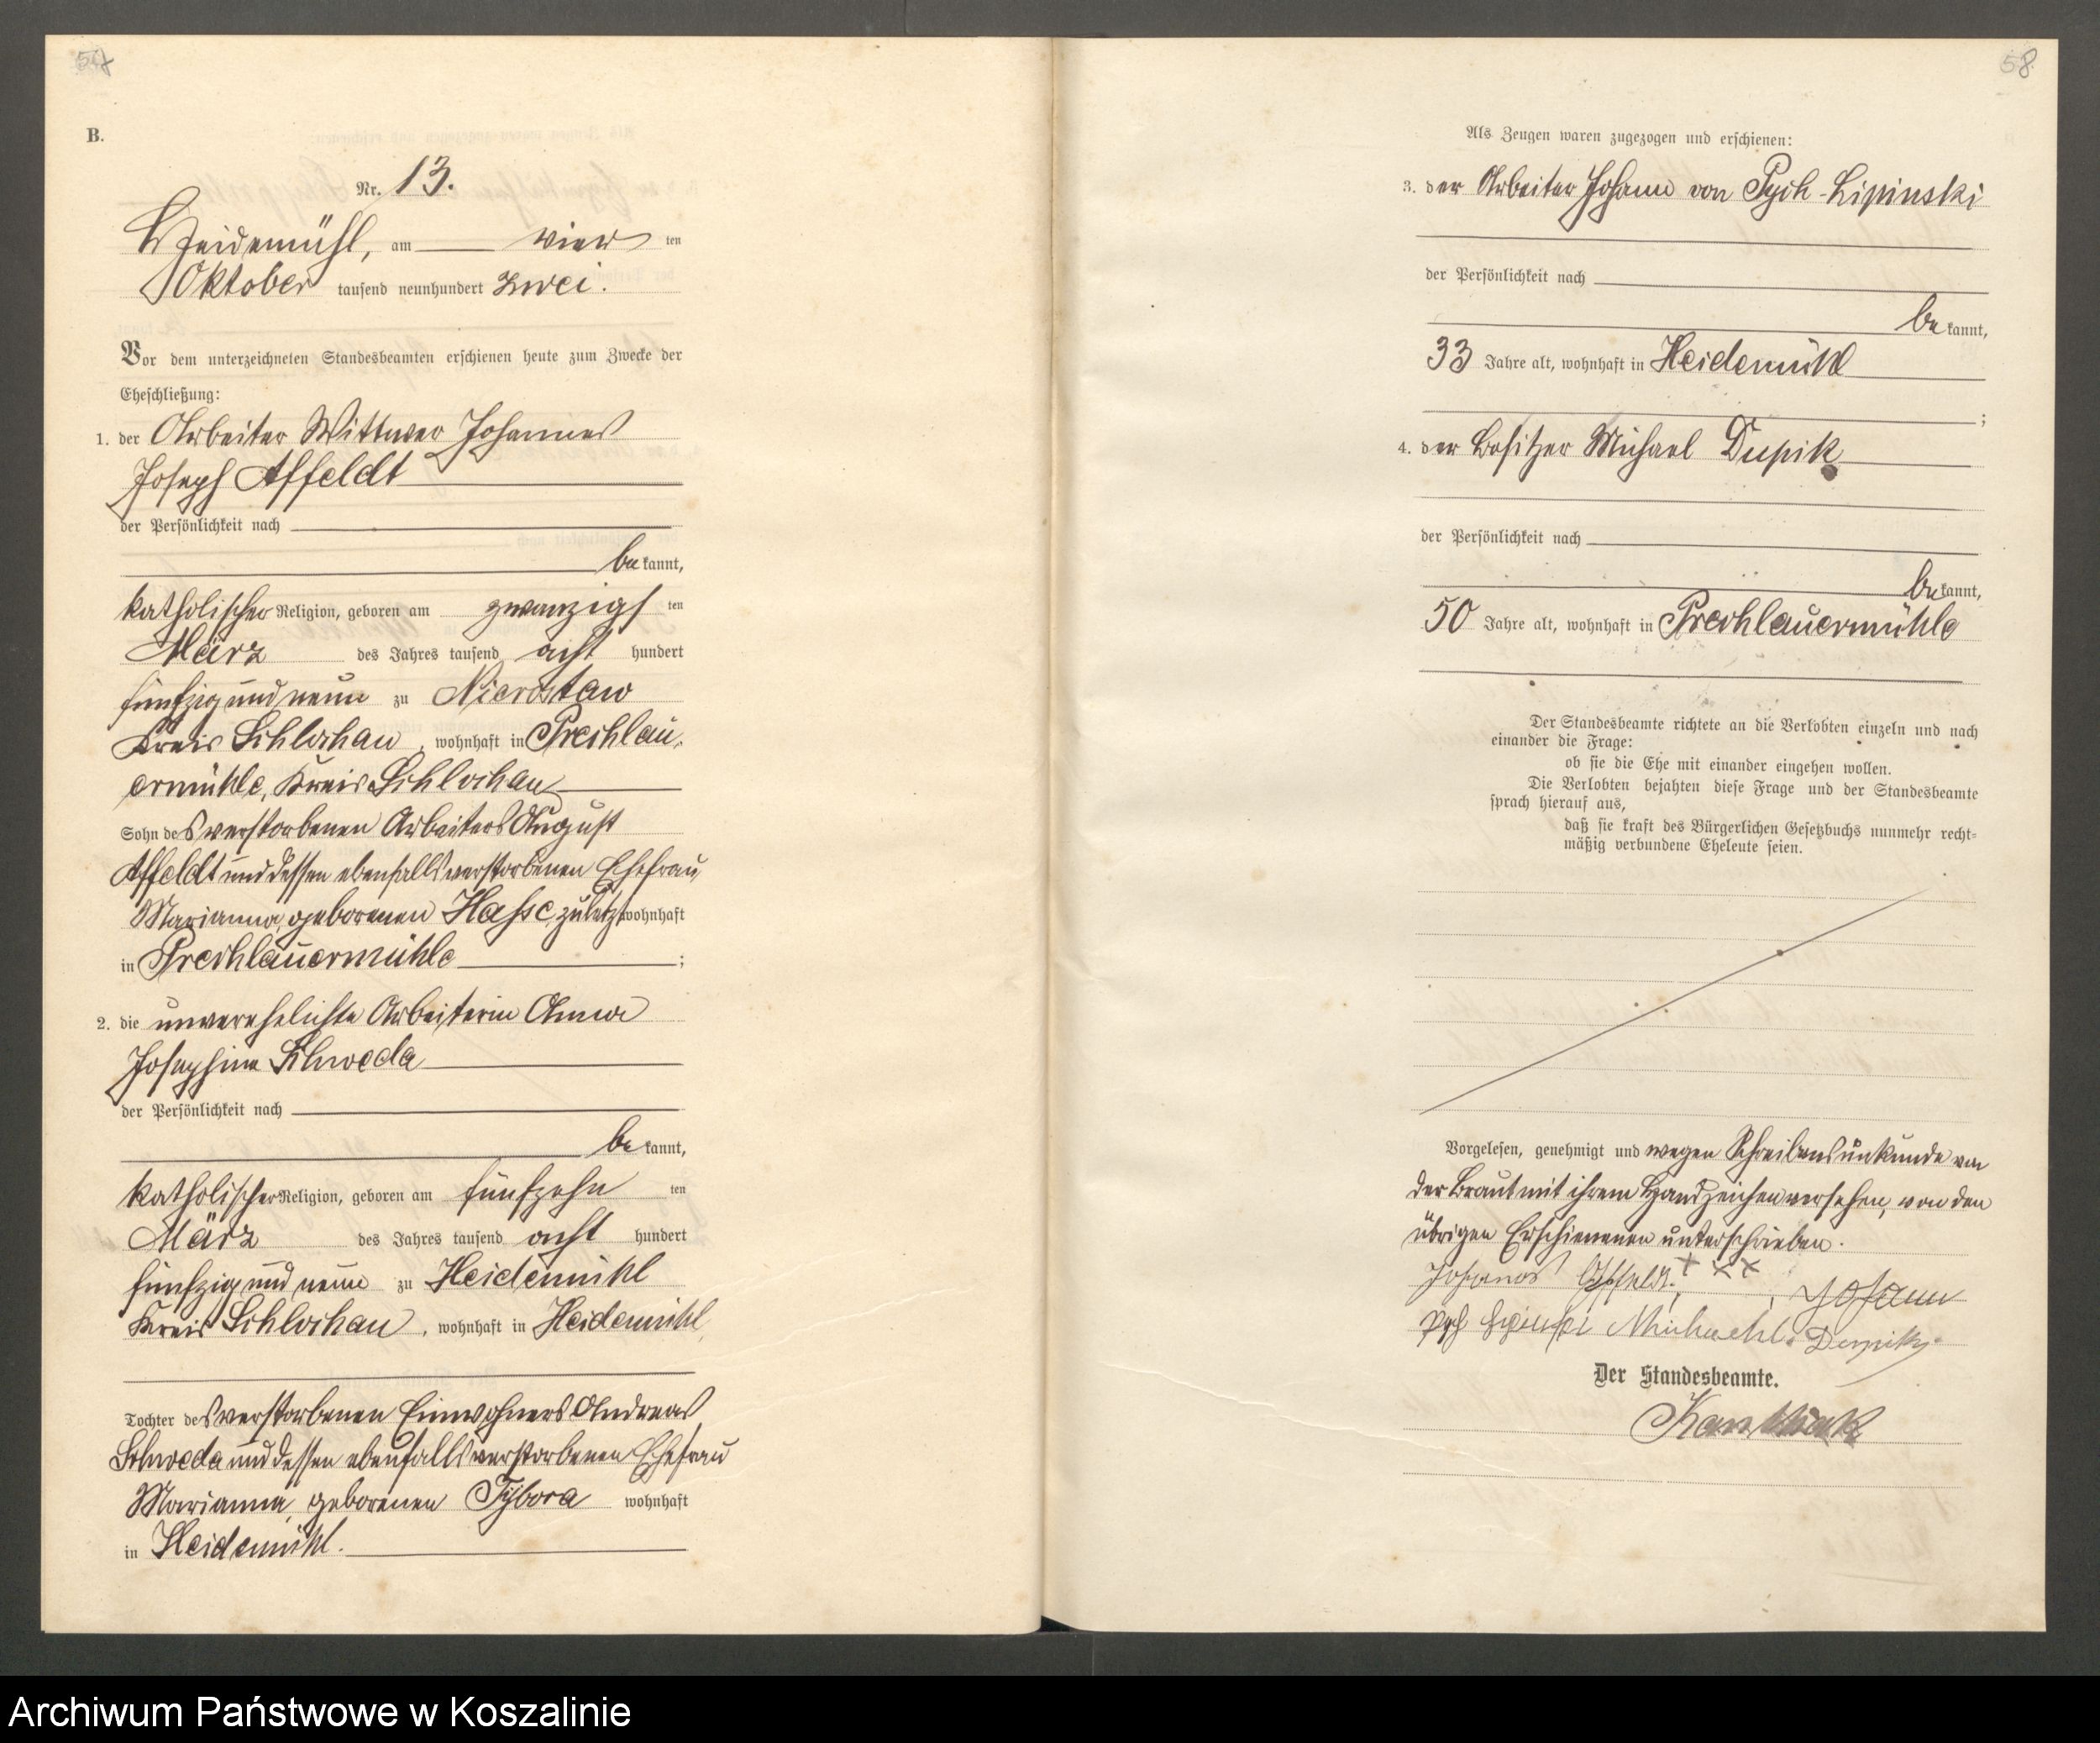 B.
Nr. 13.
Heidemühl, am vier ten
Oktober tausend neunhundert zwei.
Vor dem unterzeichneten Standesbeamten erschienen heute zum Zwecke der
Eheschließung:
1. der Arbeiter Wittwer Johannes
Joseph Affeldt
der Persönlichkeit nach
be kannt,
katholischer Religion, geboren am zwanzigs ten
März des Jahres tausend acht hundert
fünfzig und neun zu Nierostaw
Kreis Schlochau, wohnhaft in Prechlau-
ermühle, Kreis Schlochau
Sohn des verstorbenen Arbeiters August
Affeldt und dessen ebenfalls verstorbenen Ehefrau
Marianna, geborenen Hasse, zuletzt wohnhaft
in Prechlauermühle ;
2. die unverehelichte Arbeiterin Anna
Josephine Schweda
der Persönlichkeit nach
be kannt,
katholischer Religion, geboren am fünfzehn ten
März des Jahres tausend acht hundert
fünfzig und neun zu Heidemühl
Kreis Schlochau, wohnhaft in Heidemühl,
Tochter des verstorbenen Einwohners Andreas
Schweda und dessen ebenfalls verstorbenen Ehefrau
Marianna, geborenen Tybora wohnhaft
in Heidemühl.
58
Als Zeugen waren zugezogen und erschienen:
3. der Arbeiter Johann von Pych-Lipinski
der Persönlichkeit nach
be kannt,
33 Jahre alt, wohnhaft in Heidemühl
;
4. der Besitzer Michael Dupik
der Persönlichkeit nach
be kannt,
50 Jahre alt, wohnhaft in Prechlauermühle
Der Standesbeamte richtete an die Verlobten einzeln und nach
einander die Frage:
ob sie die Ehe mit einander eingehen wollen.
Die Verlobten bejahten diese Frage und der Standesbeamte
sprach hierauf aus,
daß sie kraft des Bürgerlichen Gesetzbuchs nunmehr recht=
mäßig verbundene Eheleute seien.
Vorgelesen, genehmigt und wegen Schreibensunkunde von
der Braut mit ihrem Handzeichen versehen, von den
übrigen Erschienenen unterschrieben.
Johanes Affeldt. x x x, Johann
Pych Lipinski Michaehl Dupik.
Der Standesbeamte.
Archiwum Państwowe w Koszalinie